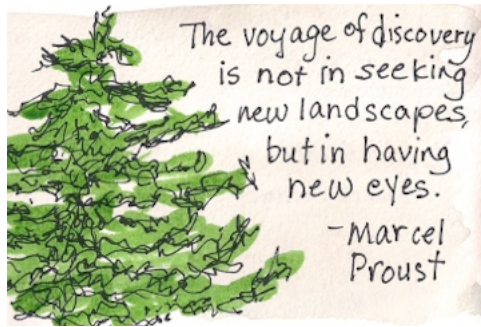 The voyage of discovery
is not in seeking
new landscapes,
but in having
new eyes.
-Marcel
Proust